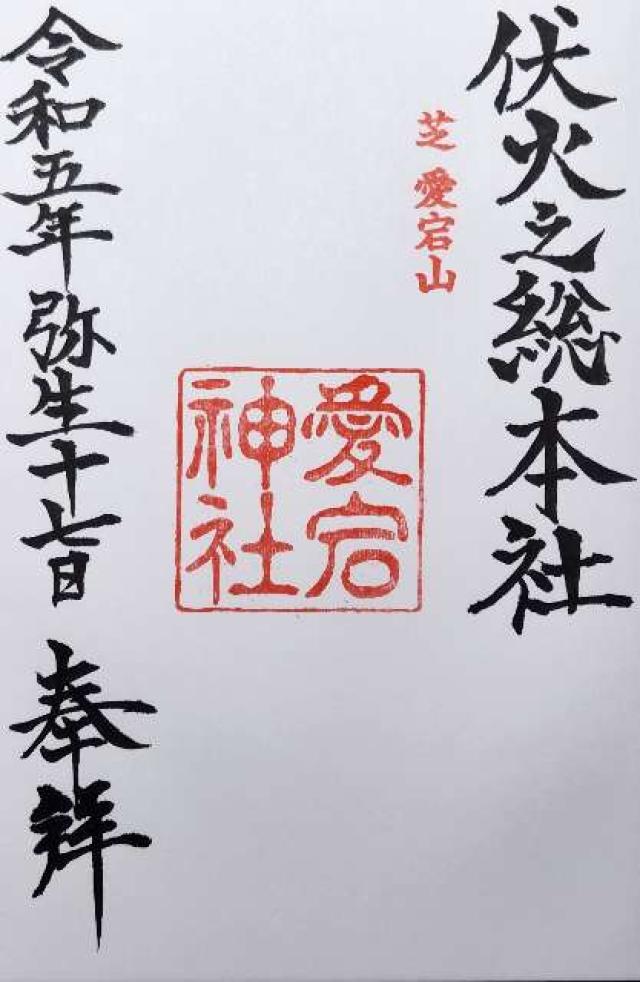 伏火之総本社
芝 愛宕山
愛宕
神社
令和五年 弥生十七日 奉拝